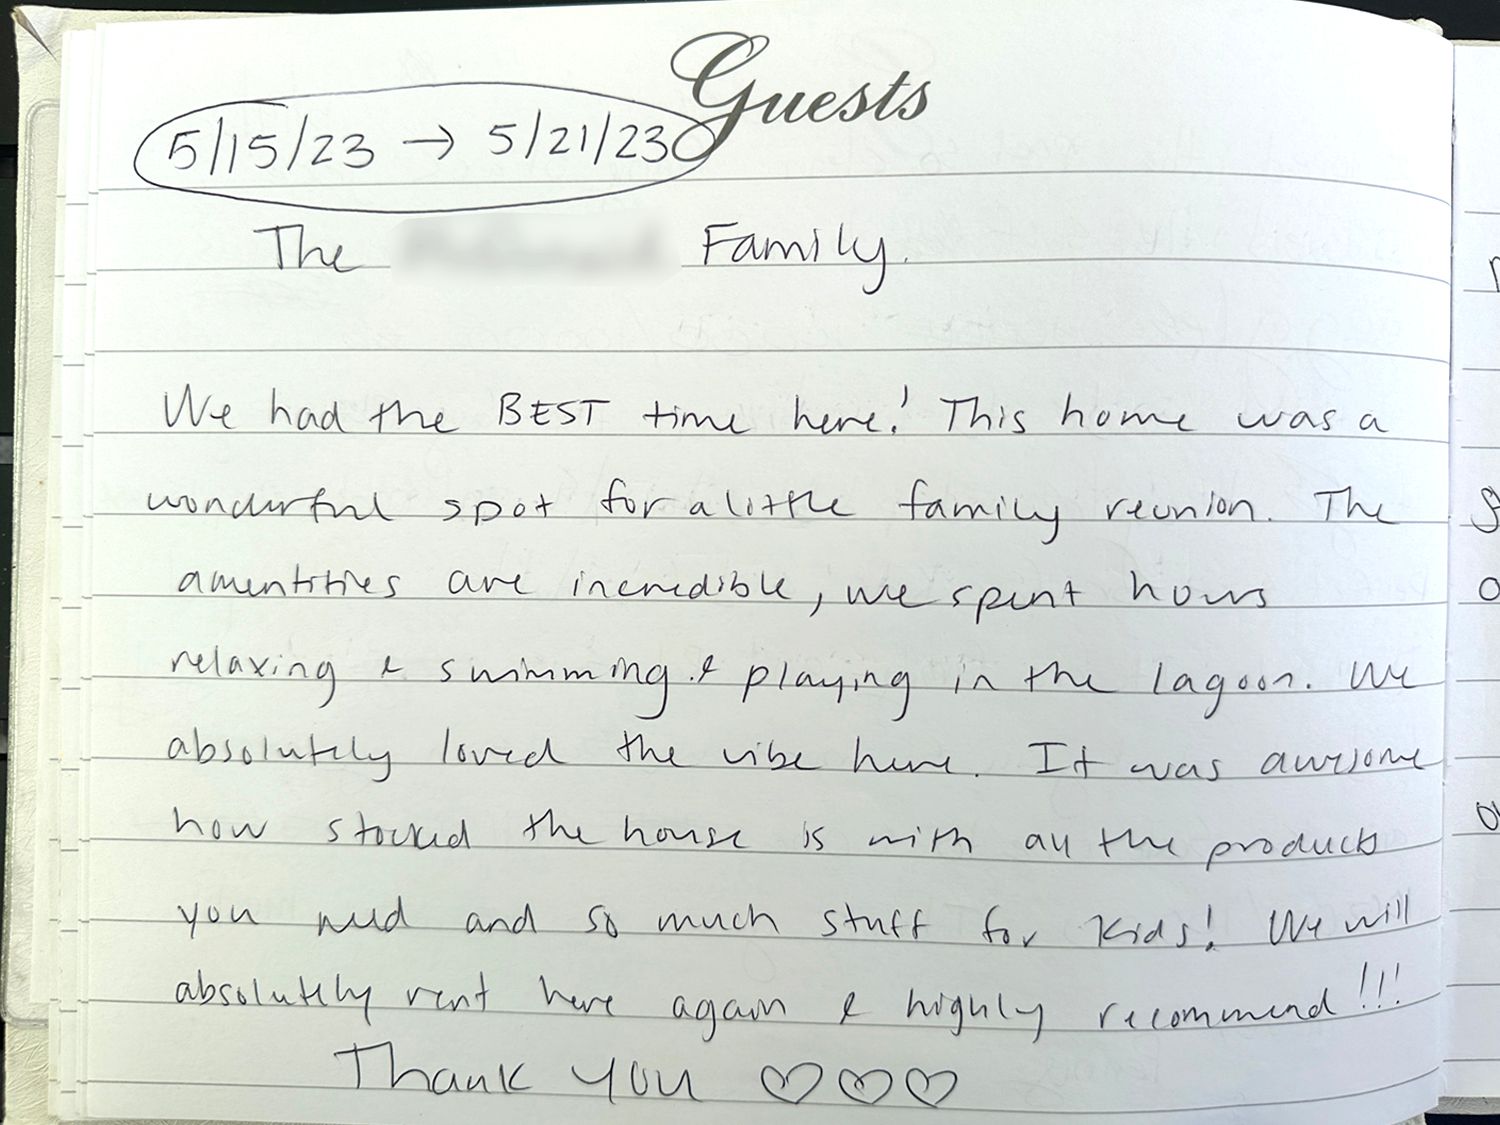 Guests
5/15/23 → 5/21/23
The Family.
We had the BEST time here! This home was a
wonderful spot for a little family reunion. The
amentities are incredible, we spent hours
relaxing & swimming & playing in the lagoon. We
absolutely loved the vibe here. It was awesome
how stocked the house is with all the products
you need and so much stuff for kids! We will
absolutely rent here again & highly recommend!!!
Thank you ♡♡♡